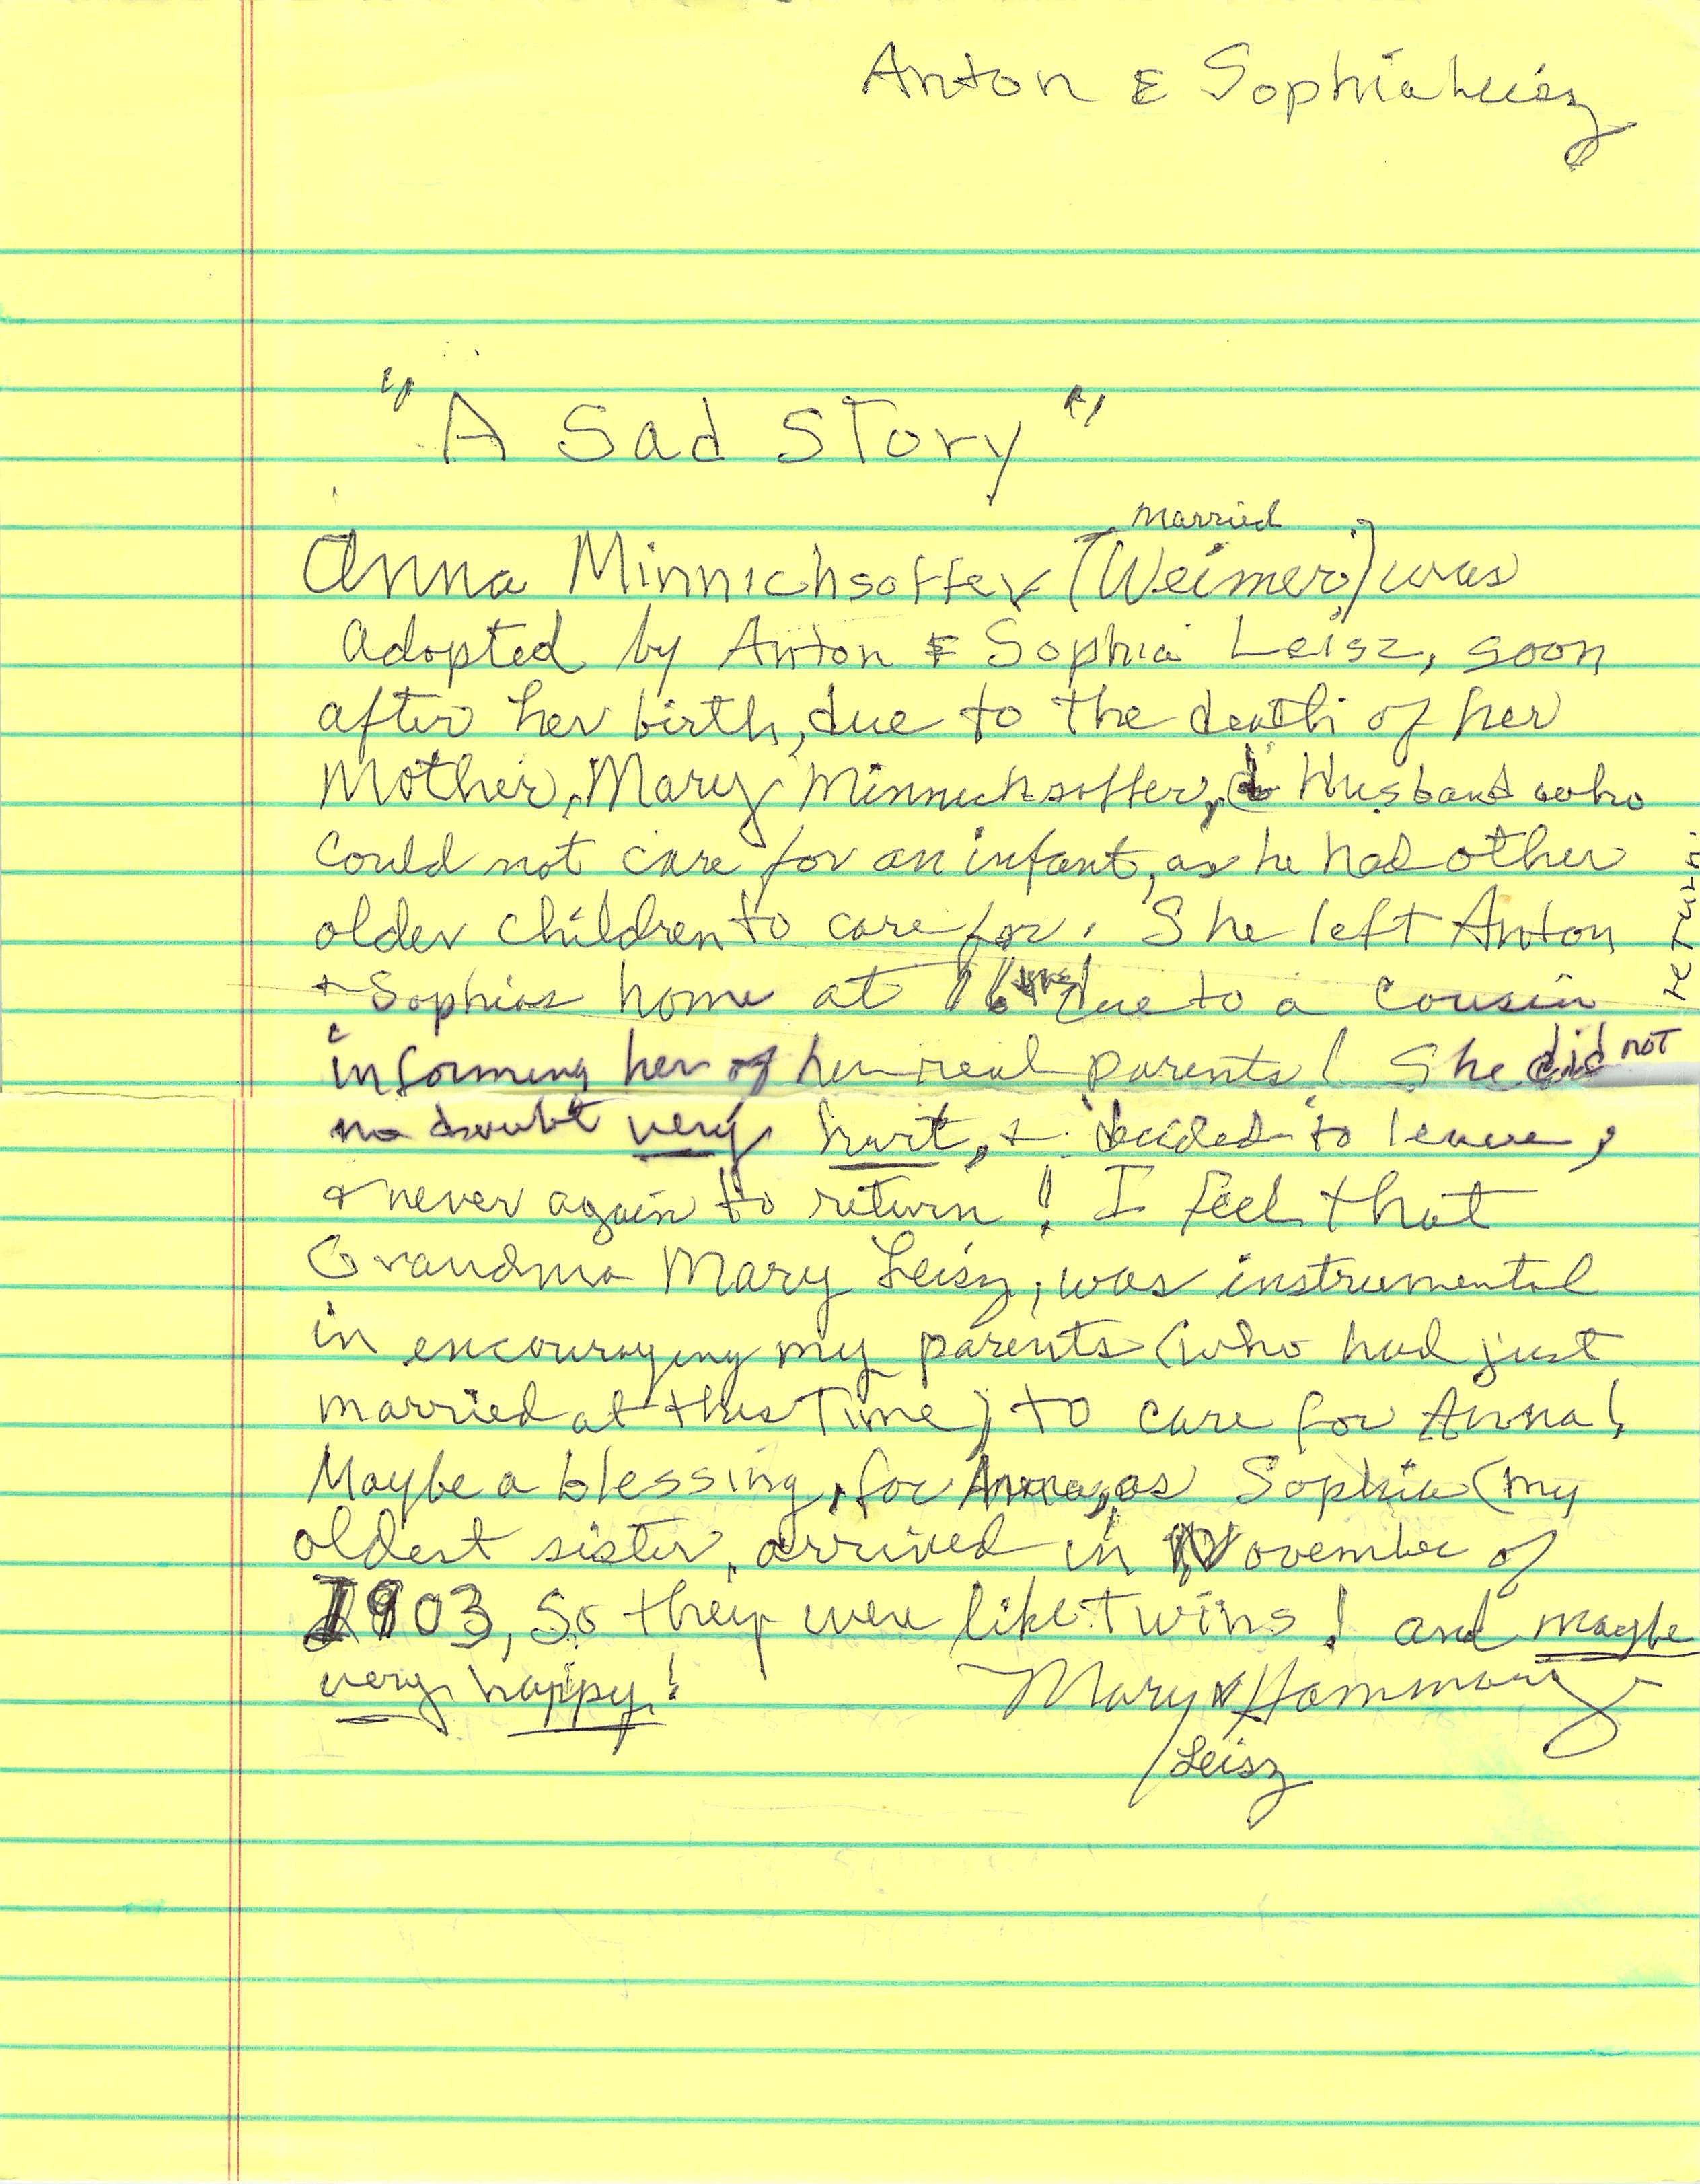 Anton & Sophia Leisz
"A Sad Story"
married
Anna Minnichsoffer (Weimer) was
adopted by Anton & Sophia Leisz, soon
after her birth, due to the death of her
Mother, Mary Minnichsoffer, & Husband who
could not care for an infant, as he had other
older children to care for. She left Anton
+ Sophias home at 16 yrs due to a cousin
informing her of her real parents! She did not
return.
no doubt very hurt, + decided to leave,
+ never again to return! I feel that
Grandma Mary Leisz, was instrumental
in encouraging my parents (who had just
married at this Time) to care for Anna!
Maybe a blessing, for Anna, as Sophia (my
oldest sister, arrived in November of
1903, So they were like Twins! and maybe
very happy!
Mary Hammary
Leisz